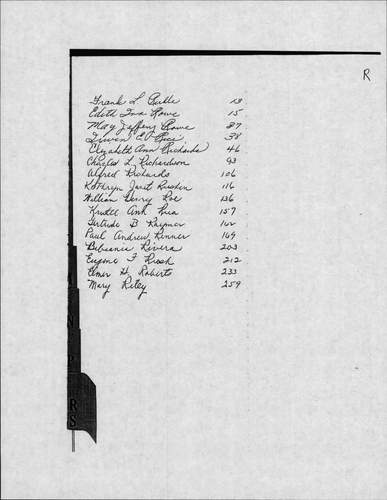 R
Frank L. Ruble 13
Edith Iva Rowe 15
May Jeffery Rowe 27
E. Rice 38
Elizabeth Ann Richards 46
Charles L. Richardson 93
Alfred Richards 106
Kathryn Janet Rushin 116
William Henry Roe 136
Kristie Ann 157
Gertrude B Raymer 162
Paul Andrew Renner 169
Bibiania Rivera 203
Eugene F Rosch 212
Elmer H. Roberts 233
Mary Riley 259
RS